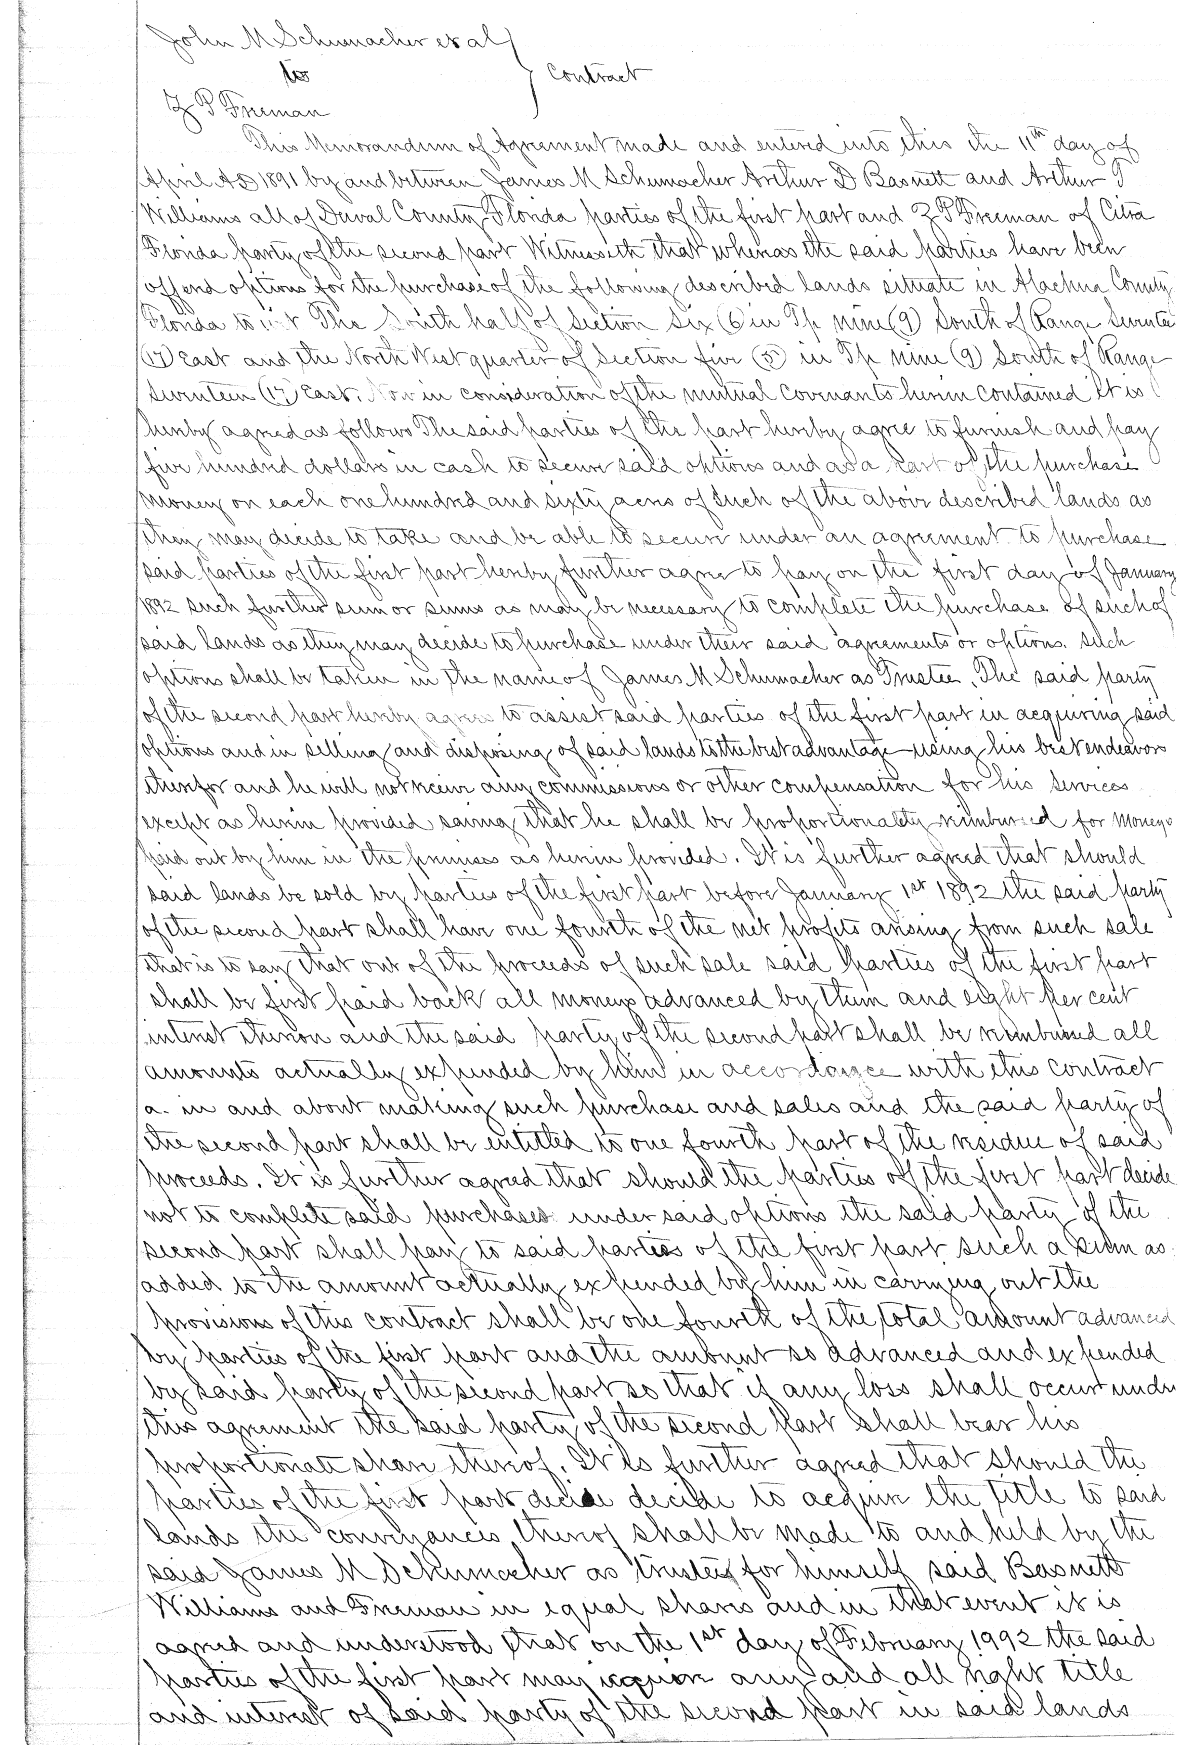 John M Schumacher et al
to } Contract
Z P Freeman
This Memorandum of Agreement made and entered into this the 11th day of
April AD 1891 by and between James M Schumacher Arthur D Basnett and Arthur T
Williams all of Duval County Florida parties of the first part and Z P Freeman of Citra
Florida party of the second part Witnesseth that whereas the said parties have been
offered options for the purchase of the following described lands situate in Alachua County
Florida to wit The South half of Section Six (6) in Tp nine (9) South of Range Seventeen
(17) East and the North West quarter of Section five (5) in Tp nine (9) South of Range
Seventeen (17) East. Now in consideration of the mutual covenants herein contained it is
hereby agreed as follows The said parties of the part hereby agree to furnish and pay
five hundred dollars in cash to secure said options and as a part of the purchase
money on each one hundred and sixty acres of such of the above described lands as
they may decide to take and be able to secure under an agreement to purchase
said parties of the first part hereby further agree to pay on the first day of January
1892 such further sum or sums as may be necessary to complete the purchase of such of
said lands as they may decide to purchase under their said agreements or options. Such
options shall be taken in the name of James M Schumacher as Trustee. The said party
of the second part hereby agrees to assist said parties of the first part in acquiring said
options and in selling and disposing of said lands to the best advantage using his best endeavors
therefor and he will not receive any commissions or other compensation for his services
except as herein provided saving that he shall be proportionately reimbursed for moneys
paid out by him in the premises as herein provided. It is further agreed that should
said lands be sold by parties of the first part before January 1st 1892 the said party
of the second part shall have one fourth of the net profits arising from such sale
that is to say that out of the proceeds of such sale said parties of the first part
shall be first paid back all moneys advanced by them and eight per cent
interest thereon and the said party of the second part shall be reimbursed all
amounts actually expended by him in accordance with this contract
a. in and about making such purchase and sales and the said party of
the second part shall be entitled to one fourth part of the residue of said
proceeds. It is further agreed that should the parties of the first part decide
not to complete said purchases under said options the said party of the
second part shall pay to said parties of the first part such a sum as
added to the amount actually expended by him in carrying out the
provisions of this contract shall be one fourth of the total amount advanced
by parties of the first part and the amount so advanced and expended
by said party of the second part so that if any loss shall occur under
this agreement the said party of the second part shall bear his
proportionate share thereof. It is further agreed that should the
parties of the first part decide decide to acquire the title to said
lands the conveyances thereof shall be made to and held by the
said James M Schumacher as trustee for himself said Basnett
Williams and Freeman in equal shares and in that event it is
agreed and understood that on the 1st day of February 1992 the said
parties of the first part may require any and all right title
and interest of said party of the second part in said lands